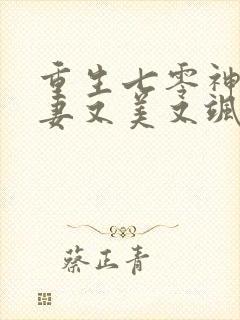 重生七零神
妻又美又飒
蔡正青